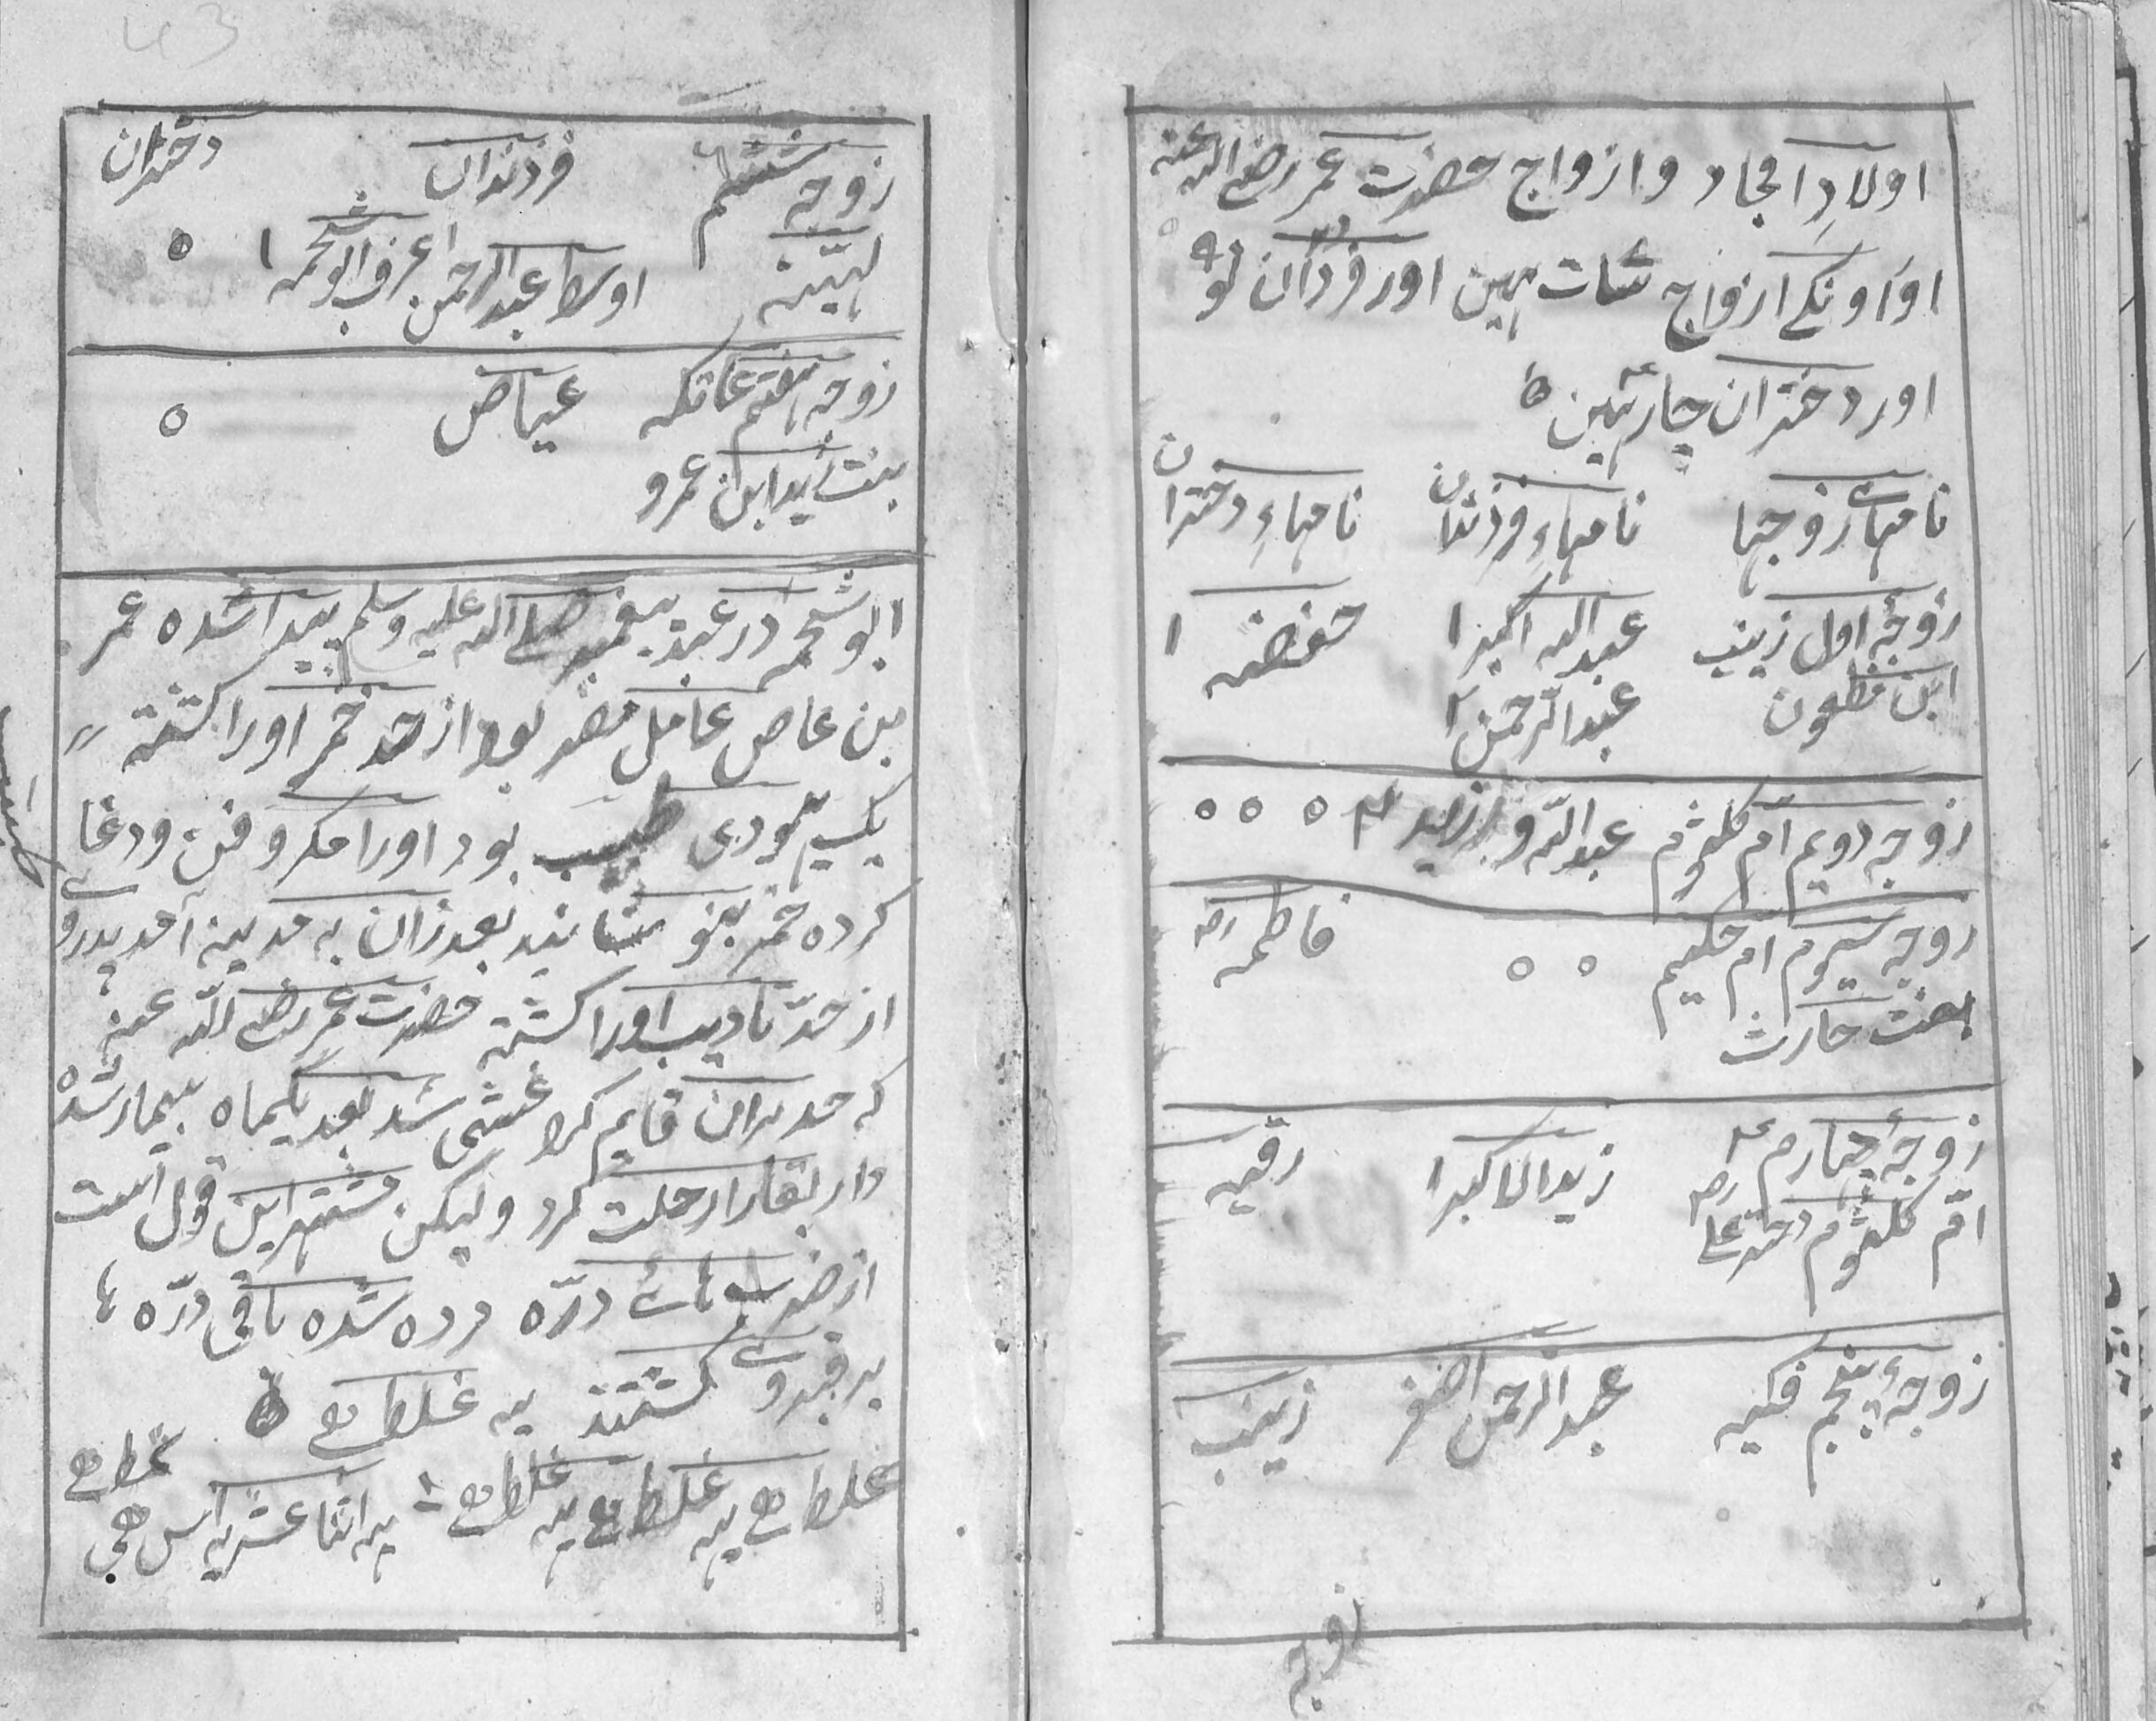 اولادِ امجاد و ازواج حضرت عمر رضی اللہ عنہ
اور اونکے ازواج سات ہین اور فرزندان نو ۹
اور دختران چار ہین ۵
نامہائے زوجہا نامہاءِ فرزندان نامہاءِ دختران
زوجۂ اول زینب عبد اللہ اکبر ۱ حفضہ ۱
ابن مظعون عبد الرّحمن ۲
زوجہ دویم اُم کلثوم عبد اللہ و زید ۰ ۰ ۰
زوجہ سیوم ام حکیم ۰ ۰ فاطمہ رض
بنت حارث
زوجۂ چہارم ۴ زید الاکبر ۱ رقیہ
امّ کلثوم دختر علی رض
زوجۂ پنجم فکیہ عبد الرحمن اصغر زینب
زوجہ
زوجہ ششم ۶ فرزندان دختران
لہیّتہ اوسط عبد الرحمن عرف ابو شحمہ ۱ ۰
زوجہ ہفتم عاتکہ عیاض ۰
بنت زید ابن عمرو
ابو شحمہ در عہد پیغمبر صلے اللہ علیہ وسلم پیدا شدہ عمر
بن عاص عامل مصر بود از حد خمر اورا کشتہ
یک یہودی طبیب بود اورا مکر و فن و دغا
کردہ خمر بنوشانید بعد زان بہ مدینہ آمد پدر وے
از حدّ تادیب اورا کشتہ حضرت عمر رضی اللہ عنہ
کہ حد بران قایم کرد غشی شد بعد یکماہ بیمار شدہ
دار بقا را رحلت کرد و لیکن مشتہر این قول است
از ضرب درّہ مردہ شدہ باقی درّہ ہا
بر قبر وے کشتند یہ غلط ہے
غلط ہے یہ غلط ہے یہ غلط ہے یہ اثنا عشریہ اس
غلط ہے